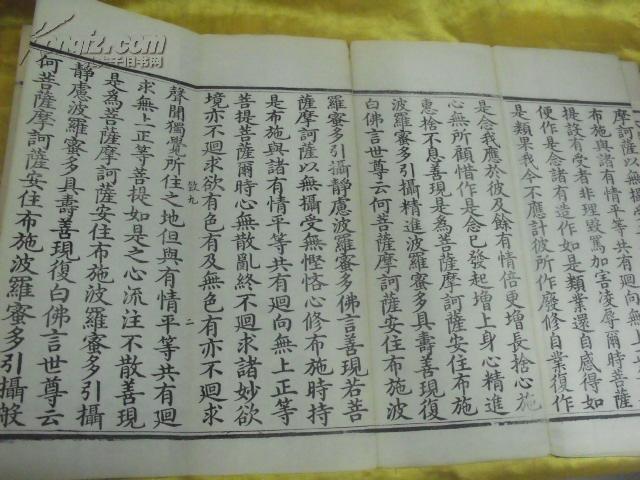 摩訶薩以無攝受無慳悋心修
布施與諸有情平等共有迴向無上正等菩
提設有受者非理毀罵加害凌辱爾時菩薩
便作是念諸有造作如是類業還自感得如
是類果我今不應計彼所作廢修自業復作
是念我應於彼及餘有情倍更增長捨心施
心無所顧惜作是念已發起增上身心精進
惠捨不息善現是為菩薩摩訶薩安住布施
波羅蜜多引攝精進波羅蜜多具壽善現復
白佛言世尊云何菩薩摩訶薩安住布施波
羅蜜多引攝靜慮波羅蜜多佛言善現若菩
薩摩訶薩以無攝受無慳悋心修布施時持
是布施與諸有情平等共有迴向無上正等
菩提菩薩爾時心無散亂終不迴求諸妙欲
境亦不迴求欲有色有及無色有亦不迴求
聲聞獨覺所住之地但與有情平等共有迴
求無上正等菩提如是之心流注不散善現
是為菩薩摩訶薩安住布施波羅蜜多引攝
靜慮波羅蜜多具壽善現復白佛言世尊云
何菩薩摩訶薩安住布施波羅蜜多引攝般
二
kongfz.com
孔夫子旧书网